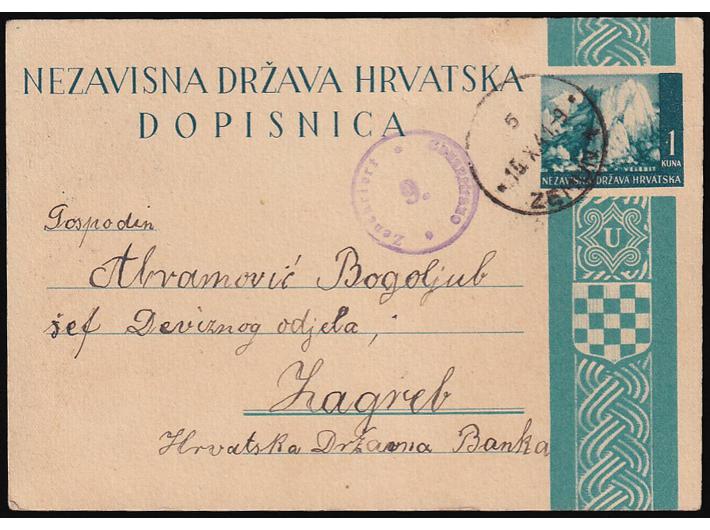 NEZAVISNA DRŽAVA HRVATSKA
DOPISNICA
1
KUNA
NEZAVISNA DRŽAVA HRVATSKA
5
15.X.41.-9
ZEMUN
Cenzurirano
9.
Zensuriert
U
Gospodin
Abramović Bogoljub
šef Deviznog odjela,
Zagreb
Hrvatska Državna Banka